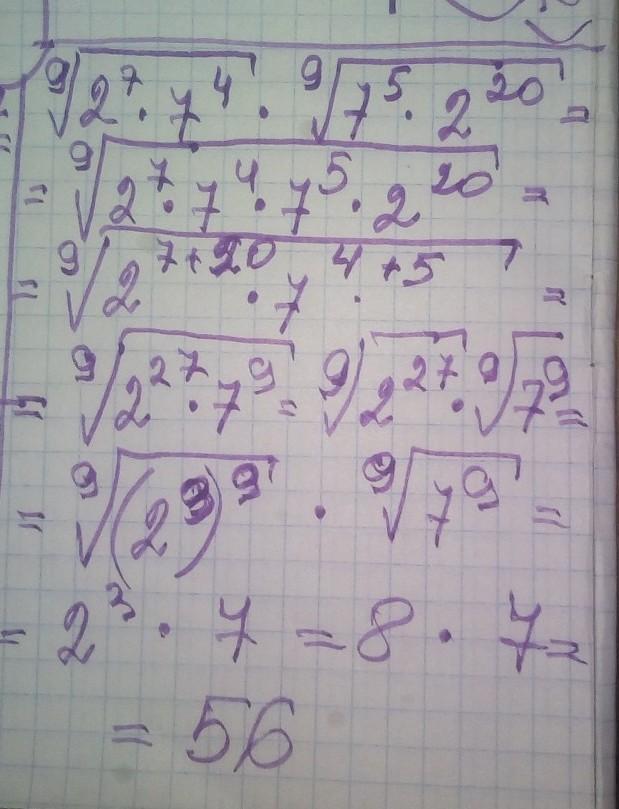 ⁹√(2⁷ · 7⁴) · ⁹√(7⁵ · 2²⁰) =
= ⁹√(2⁷ · 7⁴ · 7⁵ · 2²⁰) =
= ⁹√(2⁷⁺²⁰ · 7⁴⁺⁵) =
= ⁹√(2²⁷ · 7⁹) = ⁹√(2²⁷) · ⁹√(7⁹) =
= ⁹√((2³)⁹) · ⁹√(7⁹) =
= 2³ · 7 = 8 · 7 =
= 56